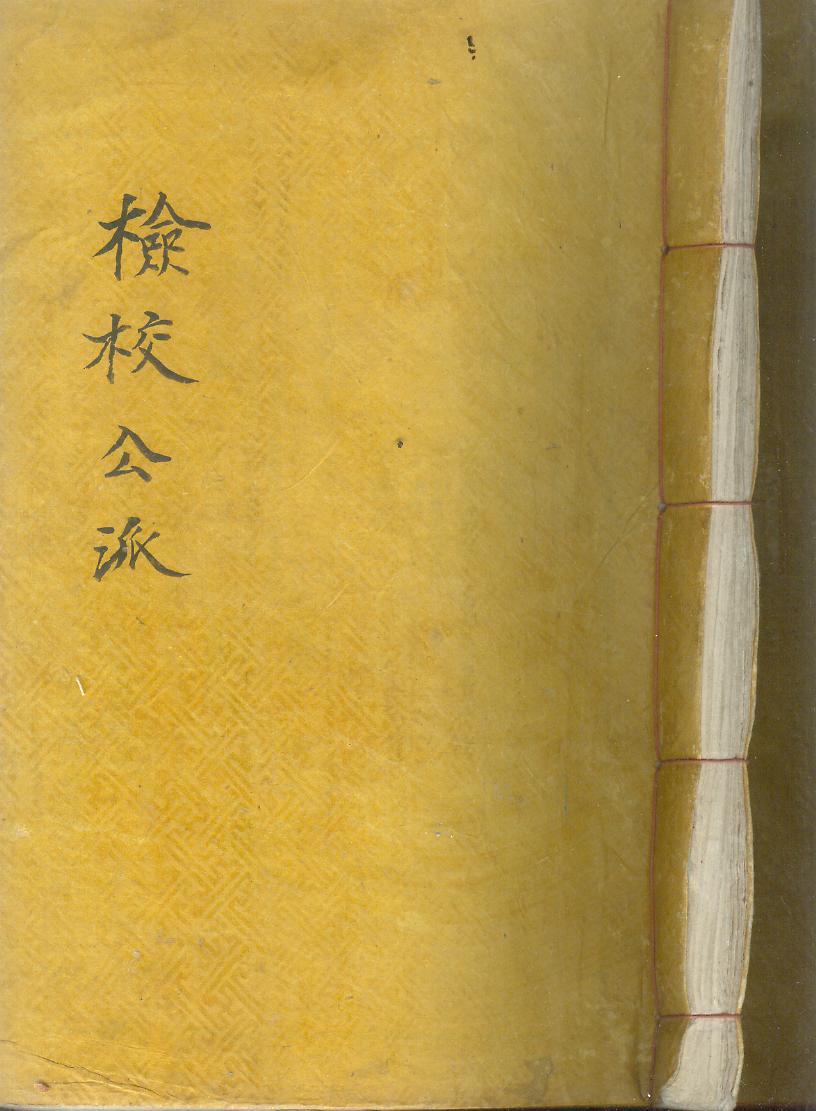 檢校公派